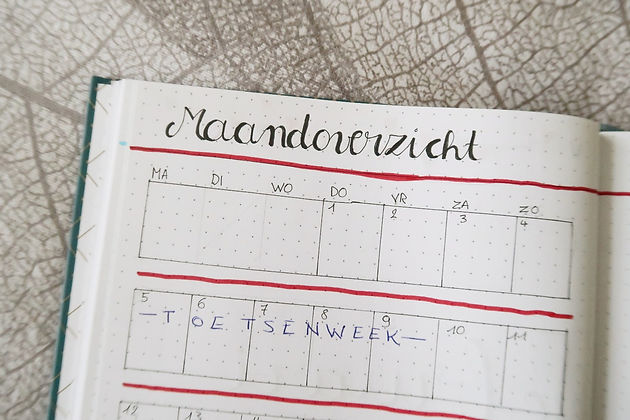 Maandoverzicht
MA DI WO DO VR ZA ZO
1 2 3 4
5 6 7 8 9 10 11
—TOETSENWEEK—
12 13